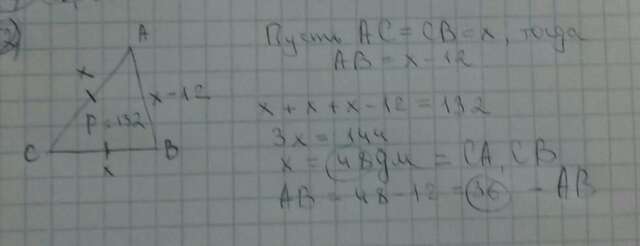 2)
A
x
x-12
P=132
C
B
x
Пусть AC = CB = x, тогда
AB = x - 12
x + x + x - 12 = 132
3x = 144
x = 48дм = CA, CB
AB = 48 - 12 = 36 - AB